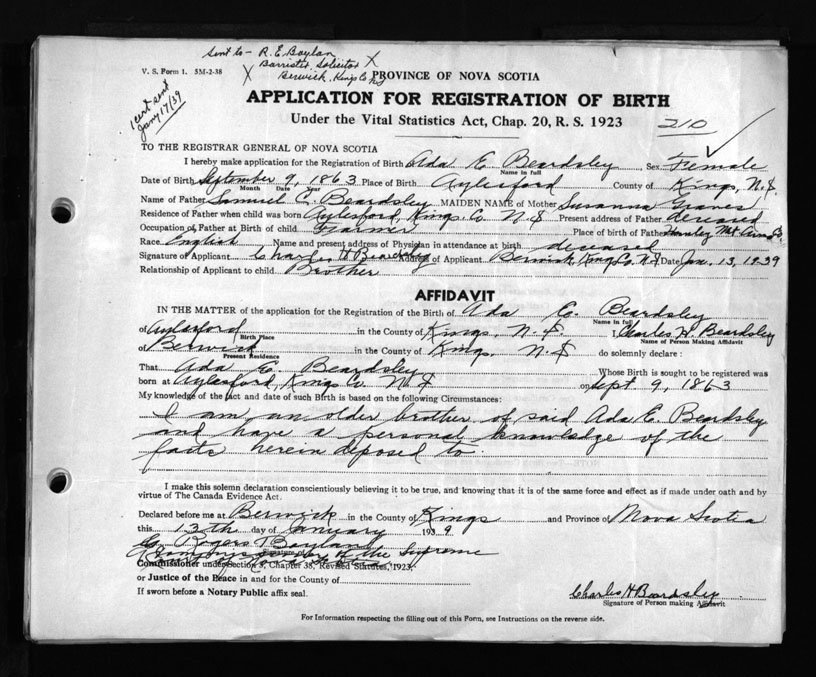 Sent to - R. E. Boylan X
Barrister, Solicitor
X Berwick, Kings Co NS
V. S. Form 1. 5M-2-38
PROVINCE OF NOVA SCOTIA
1 cert sent
Jany 17/39
APPLICATION FOR REGISTRATION OF BIRTH
Under the Vital Statistics Act, Chap. 20, R. S. 1923
210
TO THE REGISTRAR GENERAL OF NOVA SCOTIA
I hereby make application for the Registration of Birth Ada E Beardsley Sex Female
Name in full
Date of Birth September 9, 1863 Place of Birth Aylesford County of Kings, N.S.
Month Date Year
Name of Father Samuel C. Beardsley MAIDEN NAME of Mother Susanna Graves
Residence of Father when child was born Aylesford, Kings Co. N S Present address of Father deceased
Occupation of Father at Birth of child Farmer Place of birth of Father Mt
Race English Name and present address of Physician in attendance at birth deceased
Signature of Applicant Charles H Beardsley Address of Applicant Berwick, Kings Co. N.S Date Jan. 13, 1939
Relationship of Applicant to child Brother
AFFIDAVIT
IN THE MATTER of the application for the Registration of the Birth of Ada E. Beardsley
Name in full
of Aylesford in the County of Kings, N.S. I, Charles H. Beardsley
Birth Place Name of Person Making Affidavit
of Berwick in the County of Kings, N.S do solemnly declare :
Present Residence
That Ada E. Beardsley Whose Birth is sought to be registered was
born at Aylesford, Kings Co. N.S on Sept. 9, 1863
My knowledge of the fact and date of such Birth is based on the following Circumstances:
I am an older brother of said Ada E. Beardsley
and have a personal knowledge of the
facts herein deposed to.
I make this solemn declaration conscientiously believing it to be true, and knowing that it is of the same force and effect as if made under oath and by
virtue of The Canada Evidence Act.
Declared before me at Berwick in the County of Kings and Province of Nova Scotia
this 13th day of January 1939
Rogers Boylan
Signature of
A Commissioner of the Supreme
Commissioner under Section 3, Chapter 38, Revised Statutes, 1923;
or Justice of the Peace in and for the County of
If sworn before a Notary Public affix seal.
Charles H Beardsley
Signature of Person making Affidavit
For Information respecting the filling out of this Form, see Instructions on the reverse side.